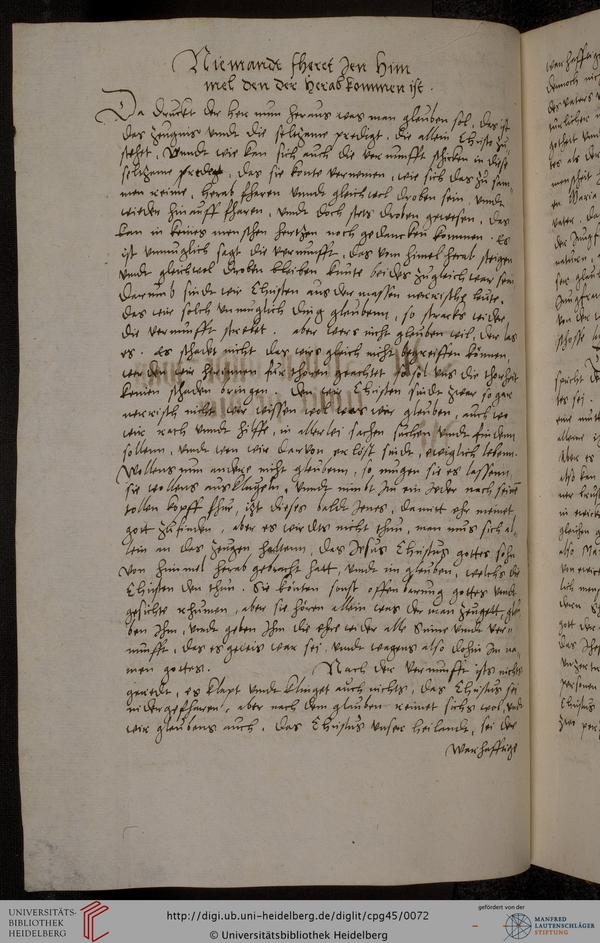 Niemandt fheret Jen Him
mel den der herab kommen ist.
Da druckt der her nun heraus was man glauben sol, das ist
das zeugnis vnndt die seltzame predigt, die allein Christo zu
stehet, Vnndt wie kan sich auch die vernunfft schicken in diese
seltzame predigt, das sie konte vernemen, wie sich das zu sam
men reime, herab fharen vnndt gleichwol droben sein, vnndt
wieder hinauff fharen, vnndt doch stets droben gewesen, das
kan in keines menschen hertzen noch gedancken kommen. Es
ist vnmuglich sagt die vernunfft, das von himel herab steigen
vnndt gleichwol droben bleiben kunte beides zugleich war sein
Darumb sindt wir Christen aus der massen nerrische leute,
das wir solch vnmuglich ding glaubenn, so stracks wider
die vernunfft strebet. aber wers nicht glauben wil, der las
es. Es schadet nicht das wirs gleich nicht begreiffen können,
werden wir hierinnen für thoren geachtet sol vns die thorheit
keinen schaden bringen, den wir Christen sindt zwar so gar
nerrisch nicht, wir wissen wol was wir glauben, auch wo
wir rath vnndt hilffe, in allerlei sachen suchen vnndt finden
sollenn, vnndt wen wir darvon erlöst sindt, ewiglich leben.
Wollens nun andere nicht glaubenn, so mugen sie es lassenn
sie wollens ausklugeln, vnndt nimbt im ein Jeder nach seinem
tollen kopff fhur, itzt dieses baldt Jenes, damitt ehr meinet
gott zufinden, aber es wirdts nicht thun, man mus sich al
lein an das zeugen haltenn, das Jesus Christus gottes sohn
von himmel herab gebracht hatt, vnndt im glauben, welchs die
Christen den thun. Sie könten sonst offenbarung gottes vnndt
gesichte rhumen, aber sie hören allein was der man zeugett, glau
ben Jhm, vnndt geben Jhm die ehre wider alle Sinne vnndt ver=
nunfft, das es gewis war sei, vnndt wagens also dohin Jn na=
men gottes. Nach der vernunfft ists nichts
geredt, es klapt vnndt klinget auch nichts, das Christus sei
nidergefharen, aber nach dem glauben reimet sichs wol, vndt
wir glaubens auch, das Christus vnser heilandt, sei der
warhafftige
UNIVERSITÄTS-
BIBLIOTHEK
HEIDELBERG
http://digi.ub.uni-heidelberg.de/diglit/cpg45/0072
© Universitätsbibliothek Heidelberg
gefördert von der
MANFRED
LAUTENSCHLÄGER
STIFTUNG